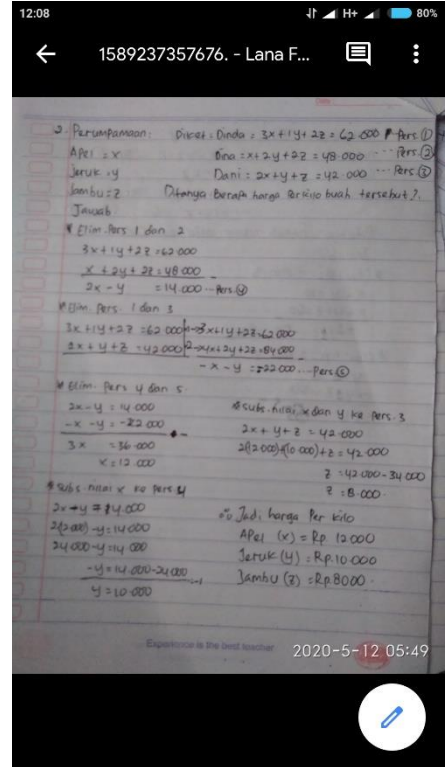 12:08
H+
80%
1589237357676. - Lana F...
2. Perumpamaan:
Apel = x
Jeruk = y
Jambu = z
Diket: Dinda = 3x+1y+2z = 62.000 Pers. ①
Dina = x+2y+2z = 48.000 ... Pers. ②
Dani = 2x+y+z = 42.000 ... Pers. ③
Ditanya Berapa harga Perkilo buah tersebut?
Jawab
* Elim. Pers 1 dan 2
3x+1y+2z = 62.000
x + 2y + 2z = 48.000
2x - y = 14.000 ... Pers. ④
* Elim. Pers. 1 dan 3
3x+1y+2z = 62.000 | 1 → 3x+1y+2z=62.000
2x+y+z = 42.000 | 2 → 4x+2y+2z=84.000
-x - y = -22.000 ... Pers. ⑤
* Elim. Pers 4 dan 5
2x - y = 14.000
-x - y = -22.000
3x = 36.000
x = 12.000
* Subs. nilai x ke Pers 4
2x - y = 14.000
2(12.000) - y = 14.000
24.000 - y = 14.000
-y = 14.000 - 24.000
y = 10.000
* Subs. nilai x dan y ke Pers. 3
2x + y + z = 42.000
2(12.000)+(10.000)+z = 42.000
z = 42.000 - 34.000
z = 8.000.
∴ Jadi, harga Per kilo
Apel (x) = Rp 12.000
Jeruk (y) = Rp. 10.000
Jambu (z) = Rp. 8000.
Experience is the best teacher
2020-5-12 05:49